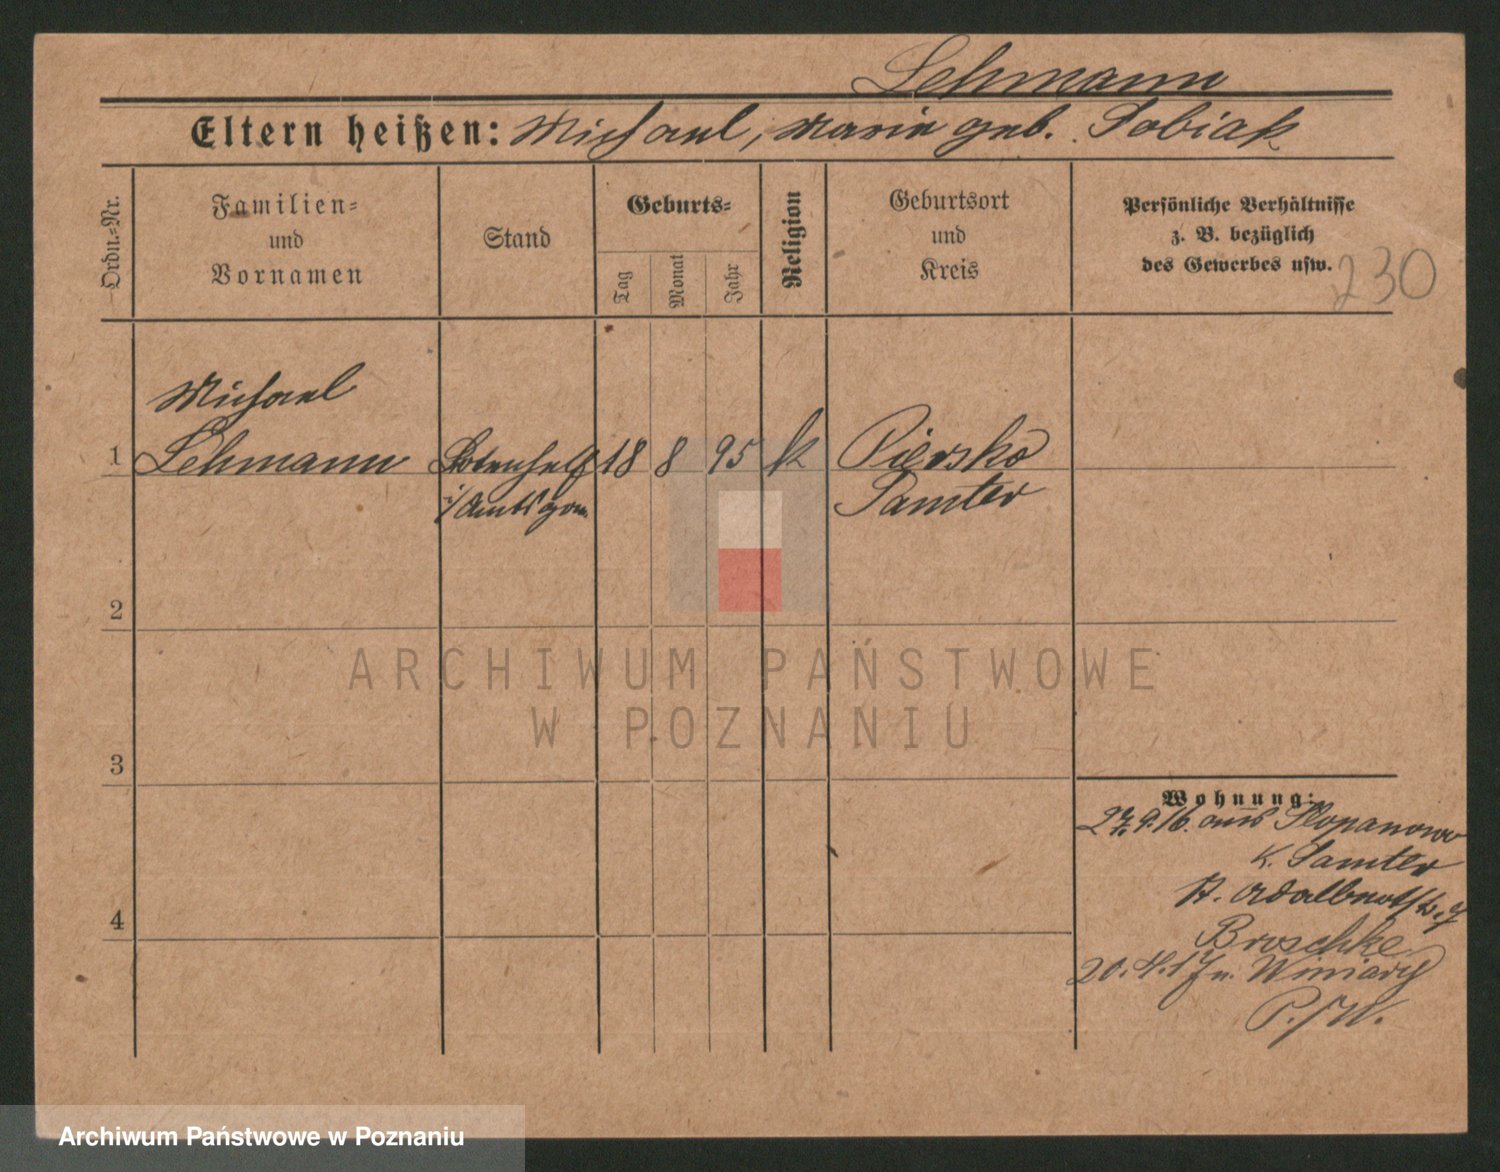 Lehmann
Eltern heißen: Michael, Marie geb. Sobiak
Ordn.-Nr.
Familien-
und
Vornamen
Stand
Geburts-
Tag
Monat
Jahr
Religion
Geburtsort
und
Kreis
Persönliche Verhältnisse
z. B. bezüglich
des Gewerbes usw.
230
Michael
1 Lehmann Botenhelf 18 8 95 k Piersko
i/Amtsger. Samter
2
3
4
Wohnung:
27.9.16. aus Slopanowo
K. Samter
St. Adalbertstr. 7
Broschke
20.4.17 n. Winiary
P./W.
ARCHIWUM PAŃSTWOWE
W POZNANIU
Archiwum Państwowe w Poznaniu